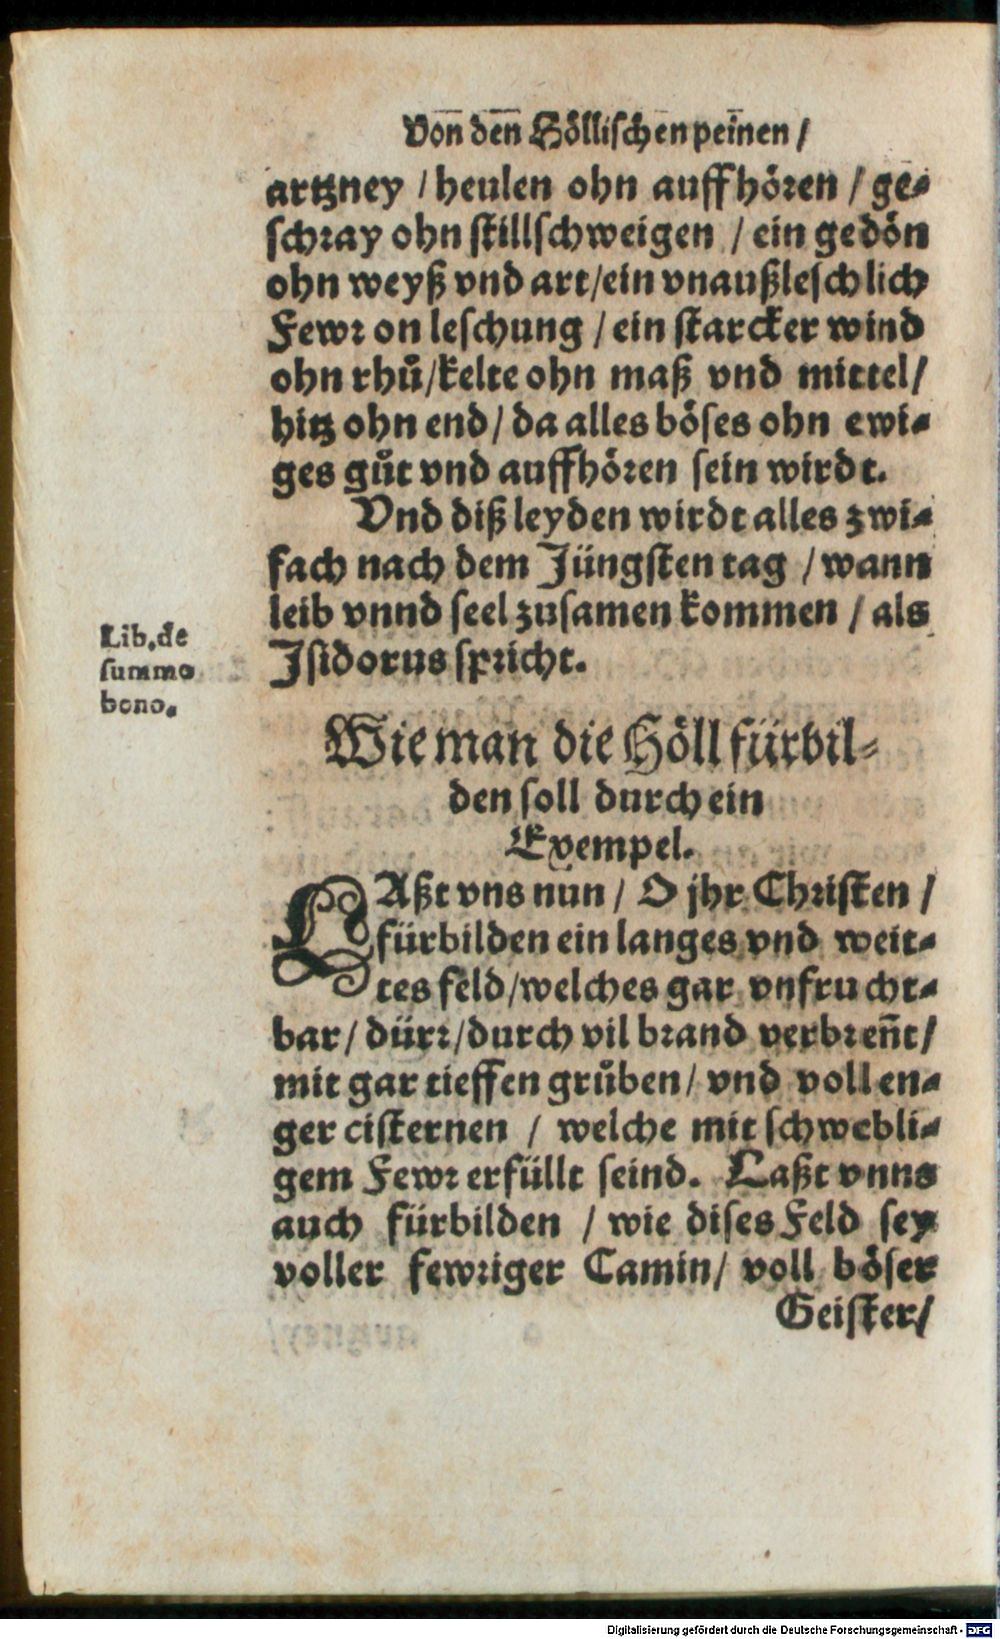 Von den Höllischen peinen /
artzney / heulen ohn auffhören / ge-
schray ohn stillschweigen / ein gedön
ohn weyß vnd art/ein vnaußleschlich
Fewr on leschung / ein starcker wind
ohn rhů/kelte ohn maß vnd mittel/
hitz ohn end/ da alles böses ohn ewi-
ges gůt vnd auffhören sein wirdt.
Vnd diß leyden wirdt alles zwi-
fach nach dem Jüngsten tag / wann
leib vnnd seel zusamen kommen / als
Jsidorus spricht.
Lib. de
summo
bono.
Wie man die Höll fürbil-
den soll durch ein
Exempel.
LAßt vns nun / O jhr Christen /
fürbilden ein langes vnd weit-
tes feld/welches gar vnfrucht-
bar/ dürr/durch vil brand verbreñt/
mit gar tieffen grůben/ vnd voll en-
ger cisternen / welche mit schwebli-
gem Fewr erfüllt seind. Laßt vnns
auch fürbilden / wie dises Feld sey
voller fewriger Camin/ voll böser
Geister/
Digitalisierung gefördert durch die Deutsche Forschungsgemeinschaft - DFG